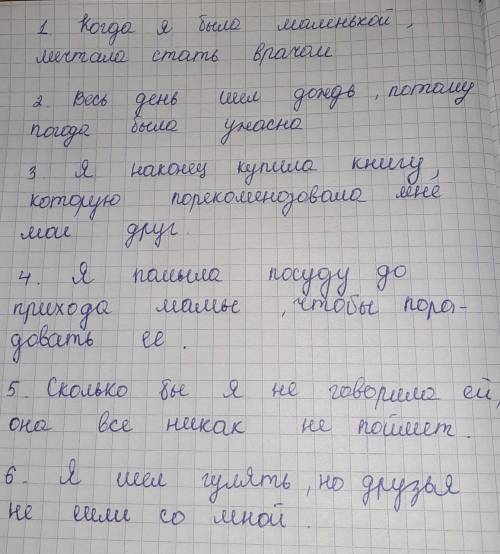 1. Когда я была маленькой,
мечтала стать врачом
2. Весь день шел дождь, потому
погода была ужасна
3. Я наконец купила книгу,
которую порекомендовала мне
моя друг.
4. Я помыла посуду до
прихода мамы, чтобы пора-
довать ее.
5. Сколько бы я не говорила ей,
она все никак не поймет.
6. Я шел гулять, но друзья
не шли со мной.